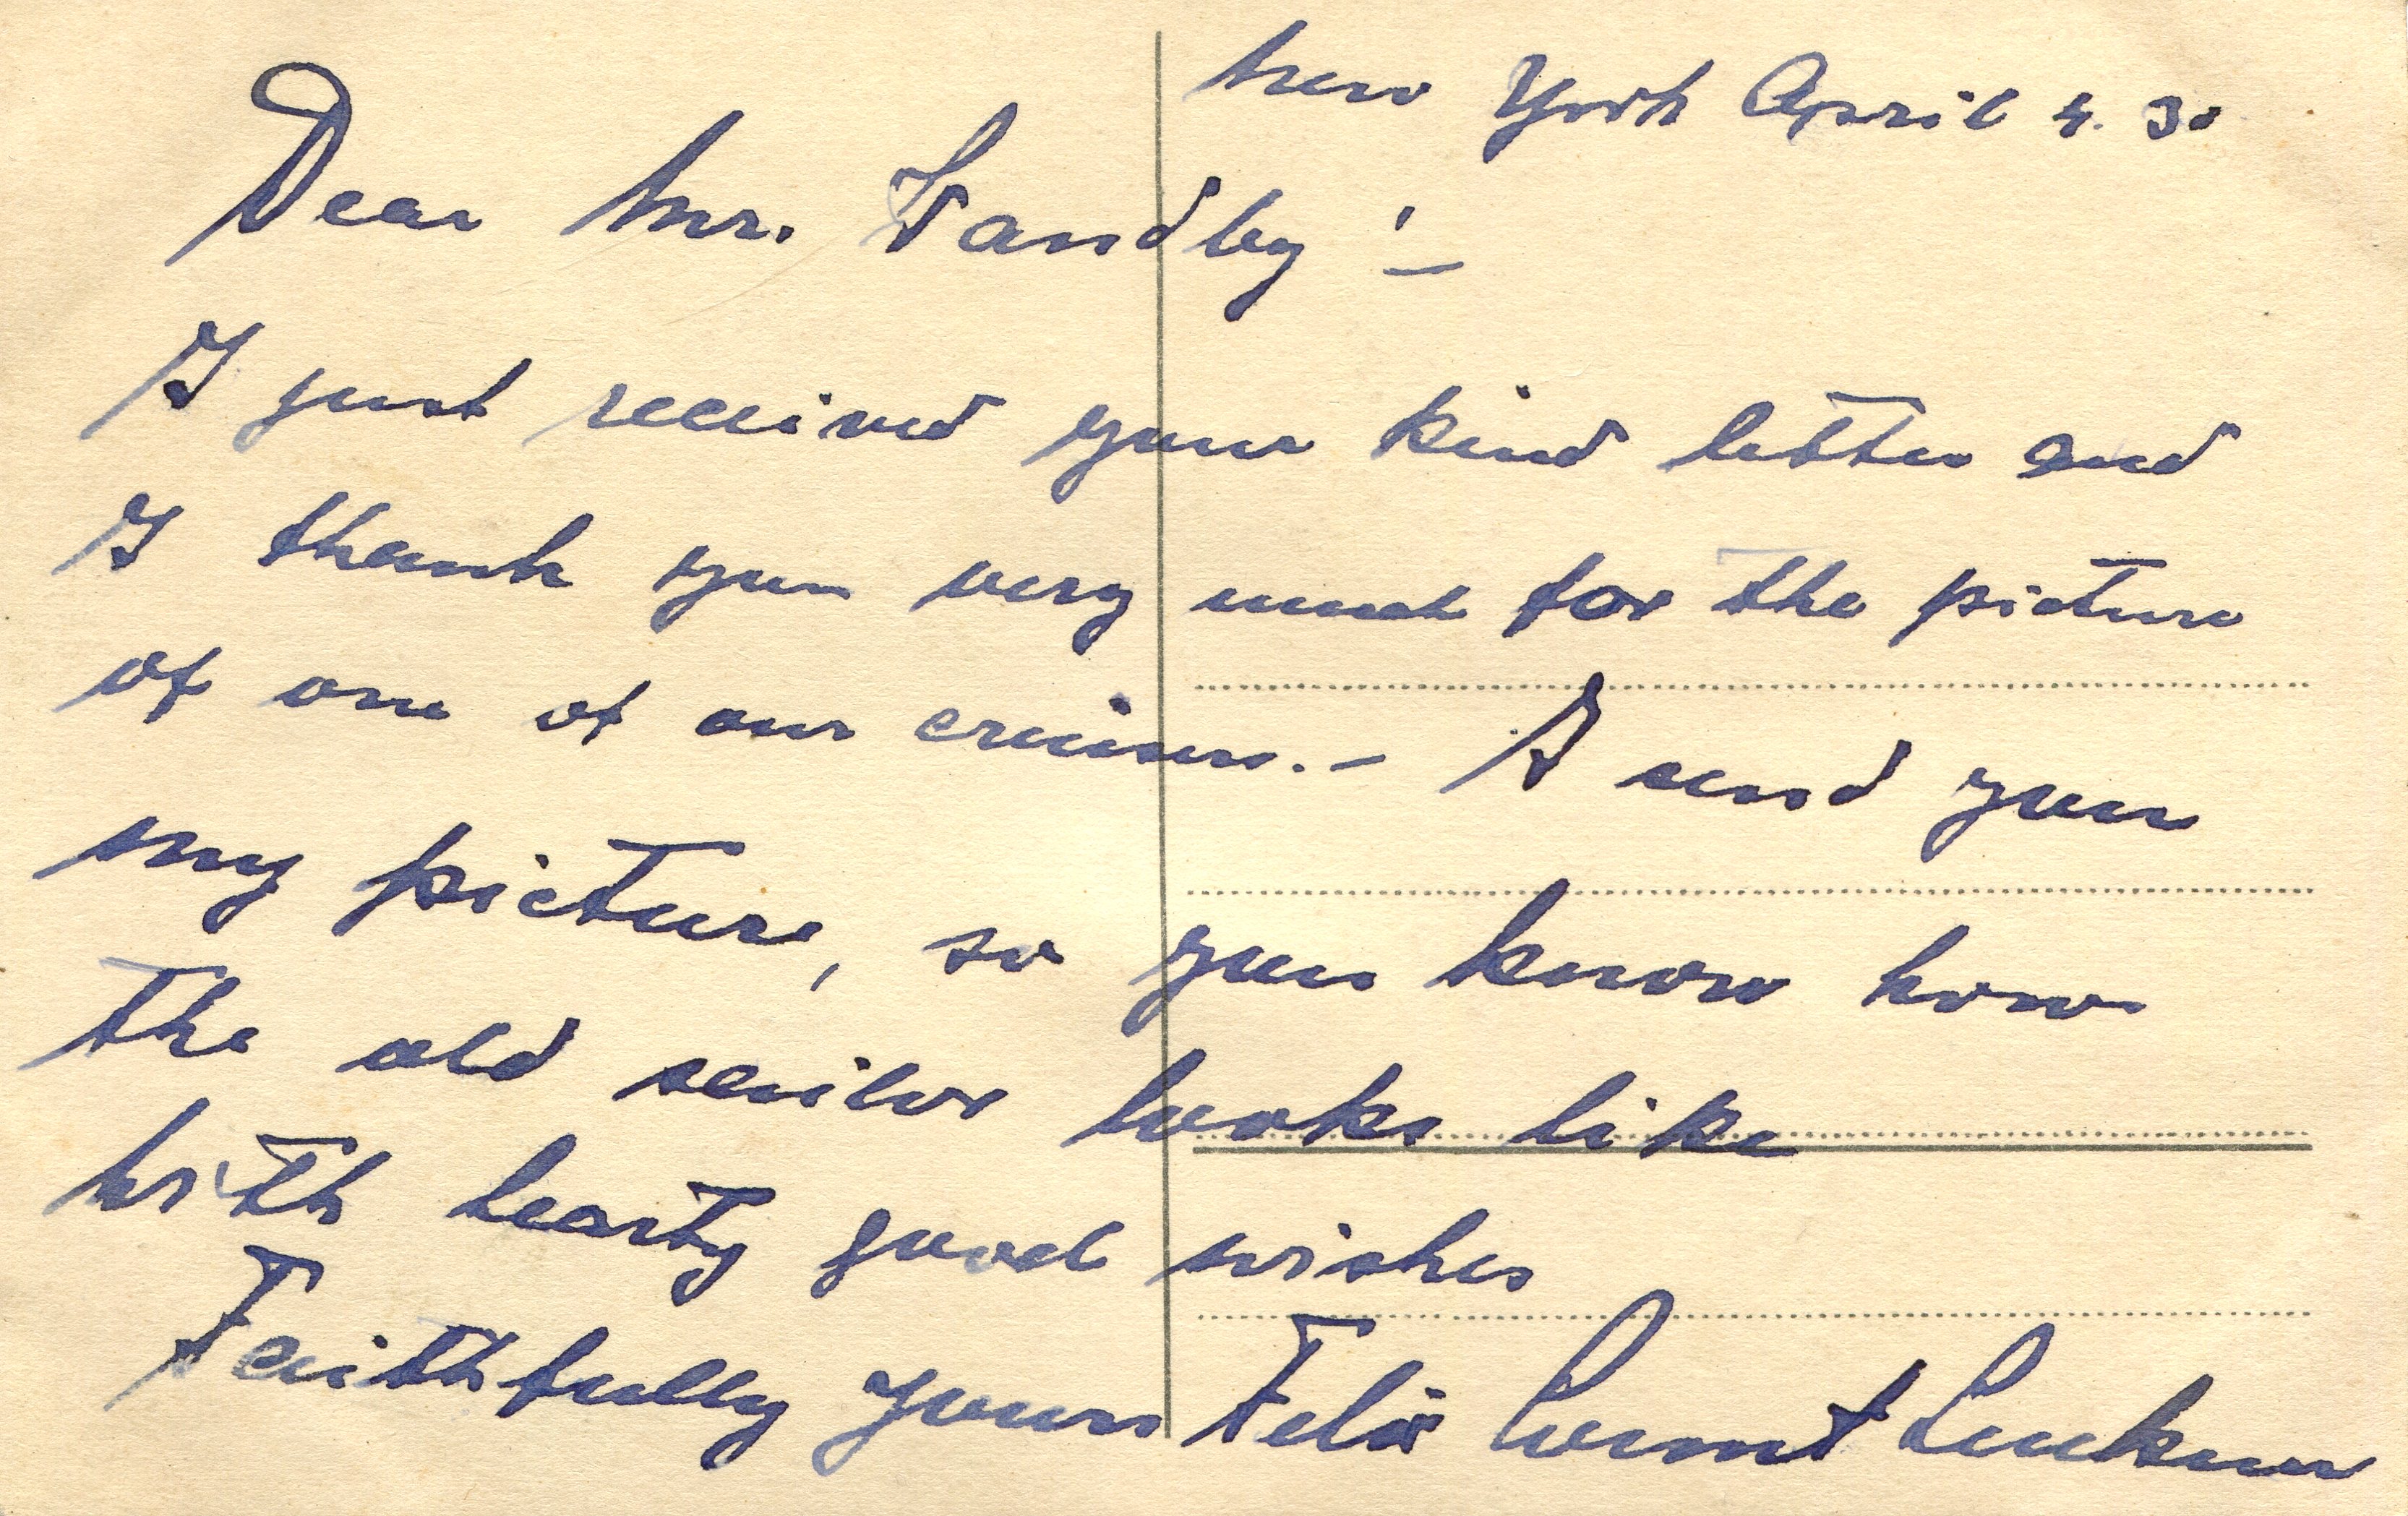 New York April 4. 30
Dear Mr. Sandby!—
I just received your kind letter and
I thank you very much for the picture
of one of our cruisers.— I send you
my picture, so you know how
the old sailor looks like
With hearty good wishes
Faithfully yours Felix Count Luckner